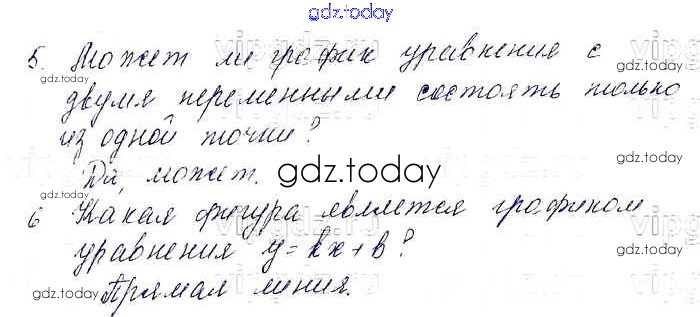 gdz.today
5. Может ли график уравнения с
двумя переменными состоять только
из одной точки?
Да, может.
gdz.today
6 Какая фигура является графиком
уравнения y=kx+b?
Прямая линия.
gdz.today
gdz.today
gdz.today
gdz.today
gdz.today
gdz.today
gdz.today
gdz.today